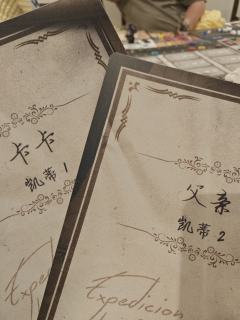 卡卡
凯蒂 1
Exped
父亲
凯蒂 2
Expedicion